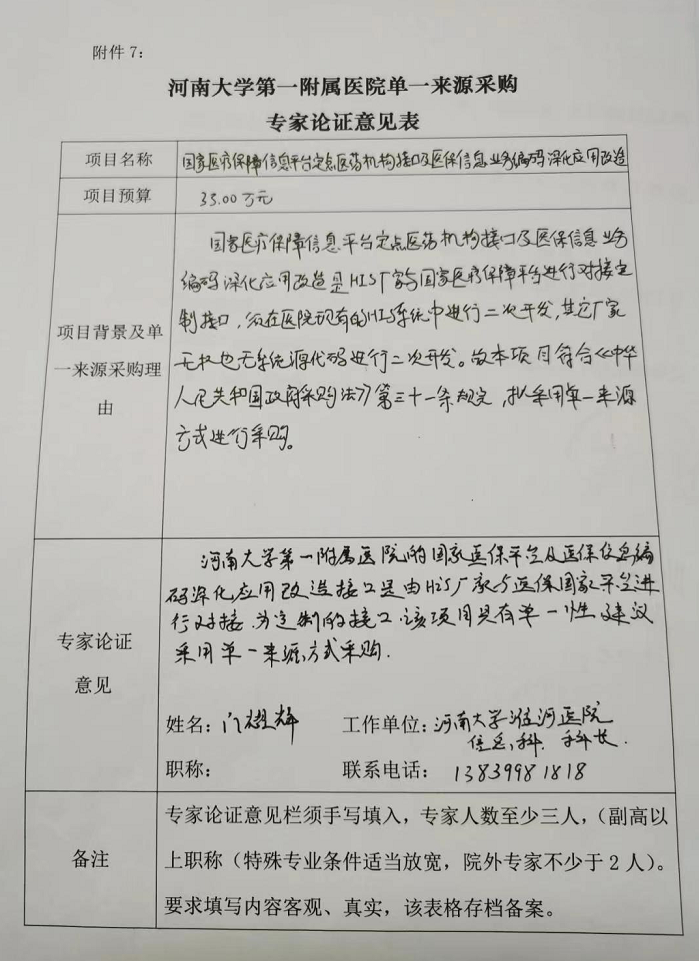 附件 7：
河南大学第一附属医院单一来源采购
专家论证意见表
项目名称
国家医疗保障信息平台定点医药机构接口及医保信息业务编码深化应用改造
项目预算
35.00万元
项目背景及单
一来源采购理
由
国家医疗保障信息平台定点医药机构接口及医保信息业务
编码深化应用改造是HIS厂家与国家医疗保障平台进行对接定
制接口，须在医院现有的HIS系统中进行二次开发，其它厂家
无权也无系统源代码进行二次开发。故本项目符合《中华
人民共和国政府采购法》第三十一条规定，拟采用单一来源
方式进行采购。
专家论证
意见
河南大学第一附属医院的国家医保平台及医保信息编
码深化应用改造接口是由HIS厂家与医保国家平台进
行对接.为定制的接口.该项目具有单一性.建议
采用单一来源方式采购.
姓名：门耀辉
工作单位：河南大学淮河医院
信息科 科长.
职称：
联系电话：13839981818
备注
专家论证意见栏须手写填入，专家人数至少三人，（副高以
上职称（特殊专业条件适当放宽，院外专家不少于 2 人）。
要求填写内容客观、真实，该表格存档备案。